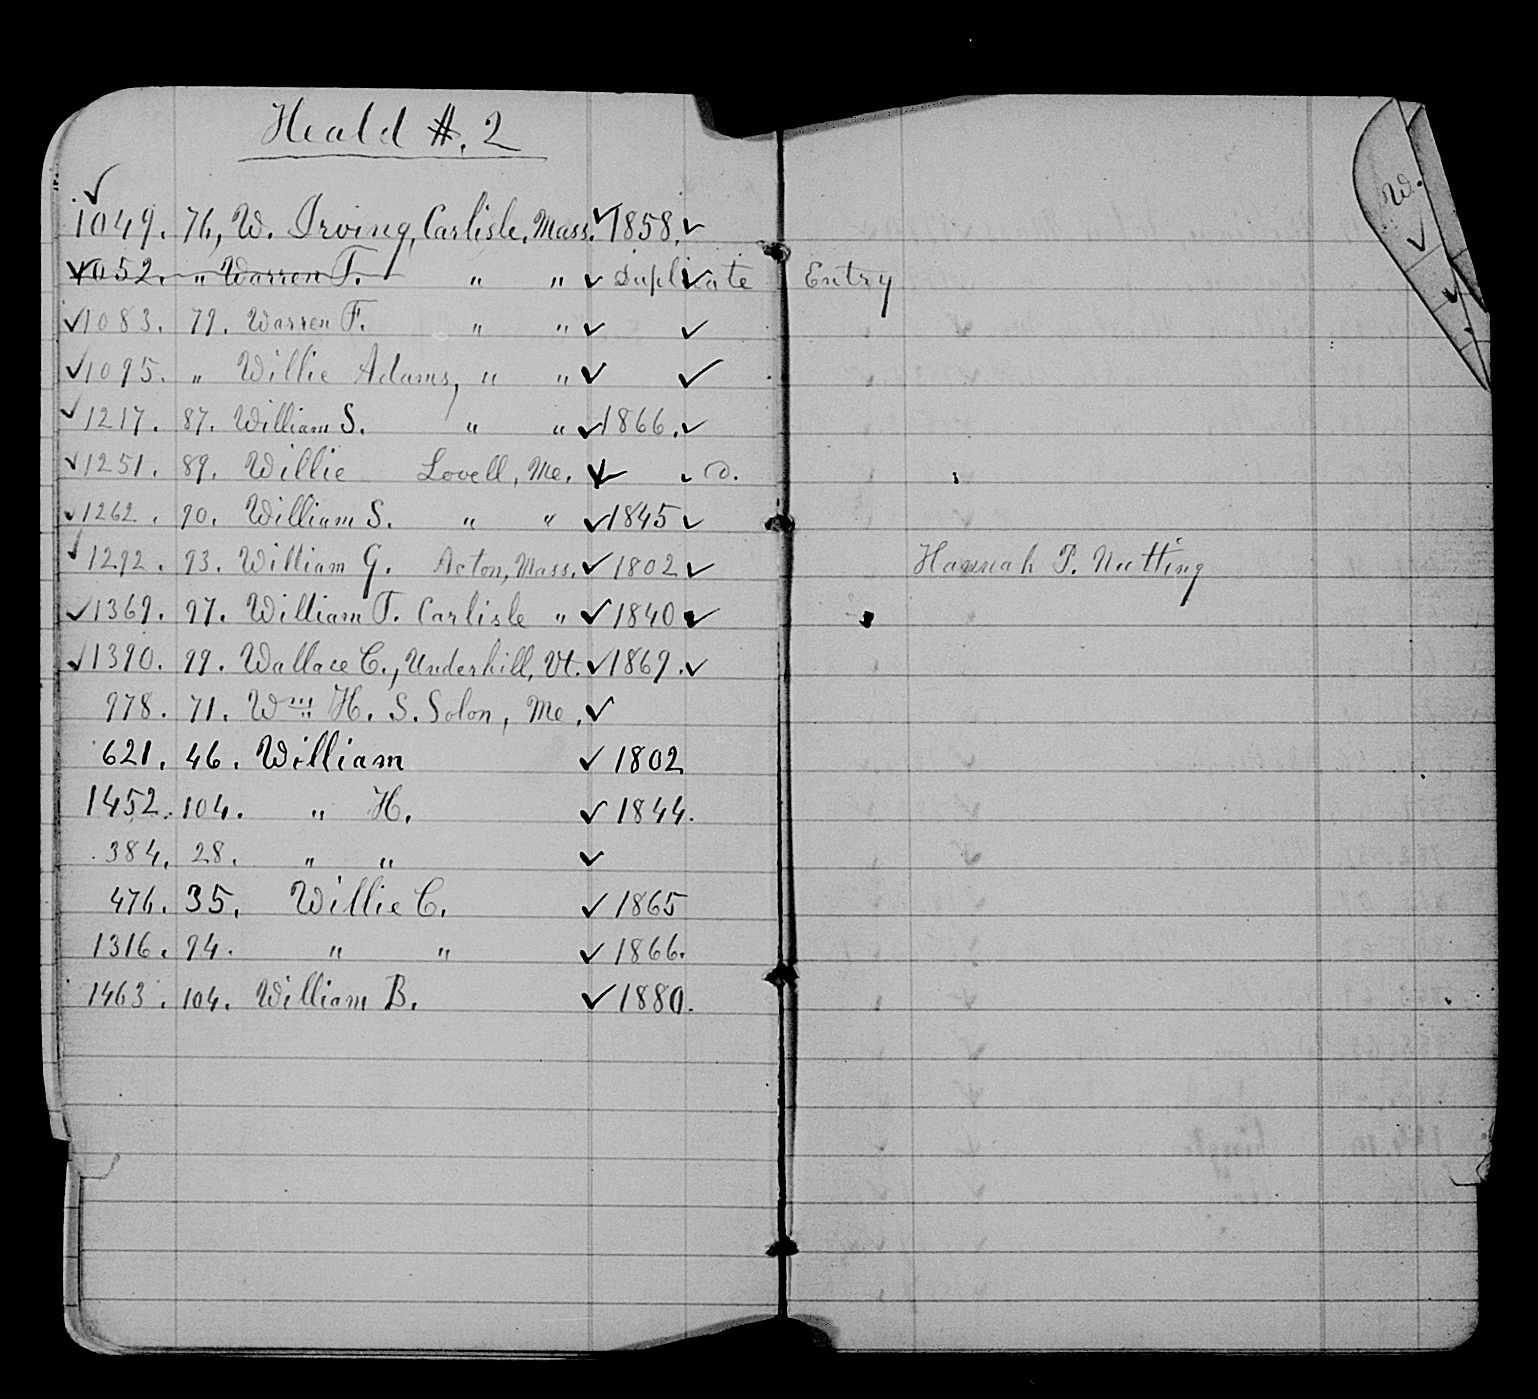 Heald #. 2
✓
1049. 76, W. Irving, Carlisle, Mass. ✓ 1858. ✓
✓1052. " Warren F. " " ✓ Duplicate Entry
✓1083. 79. Warren F. " " ✓ ✓
✓1095. " Willie Adams, " " ✓ ✓
✓1217. 87. William S. " " ✓ 1866. ✓
✓1251. 89. Willie Lovell, Me. ✓ D.
✓1262. 90. William S. " " ✓ 1845 ✓
✓1292. 93. William G. Acton, Mass. ✓ 1802 ✓ Hannah P. Nutting
✓1369. 97. William T. Carlisle " ✓ 1840 ✓
✓1390. 99. Wallace C., Underhill, Vt. ✓ 1869. ✓
978. 71. Wm H. S. Solon, Me. ✓
621. 46. William ✓ 1802
1452. 104. " H. ✓ 1844.
384. 28. " " ✓
476. 35. Willie C. ✓ 1865
1316. 94. " " ✓ 1866.
1463. 104. William B. ✓ 1880.
W.
✓